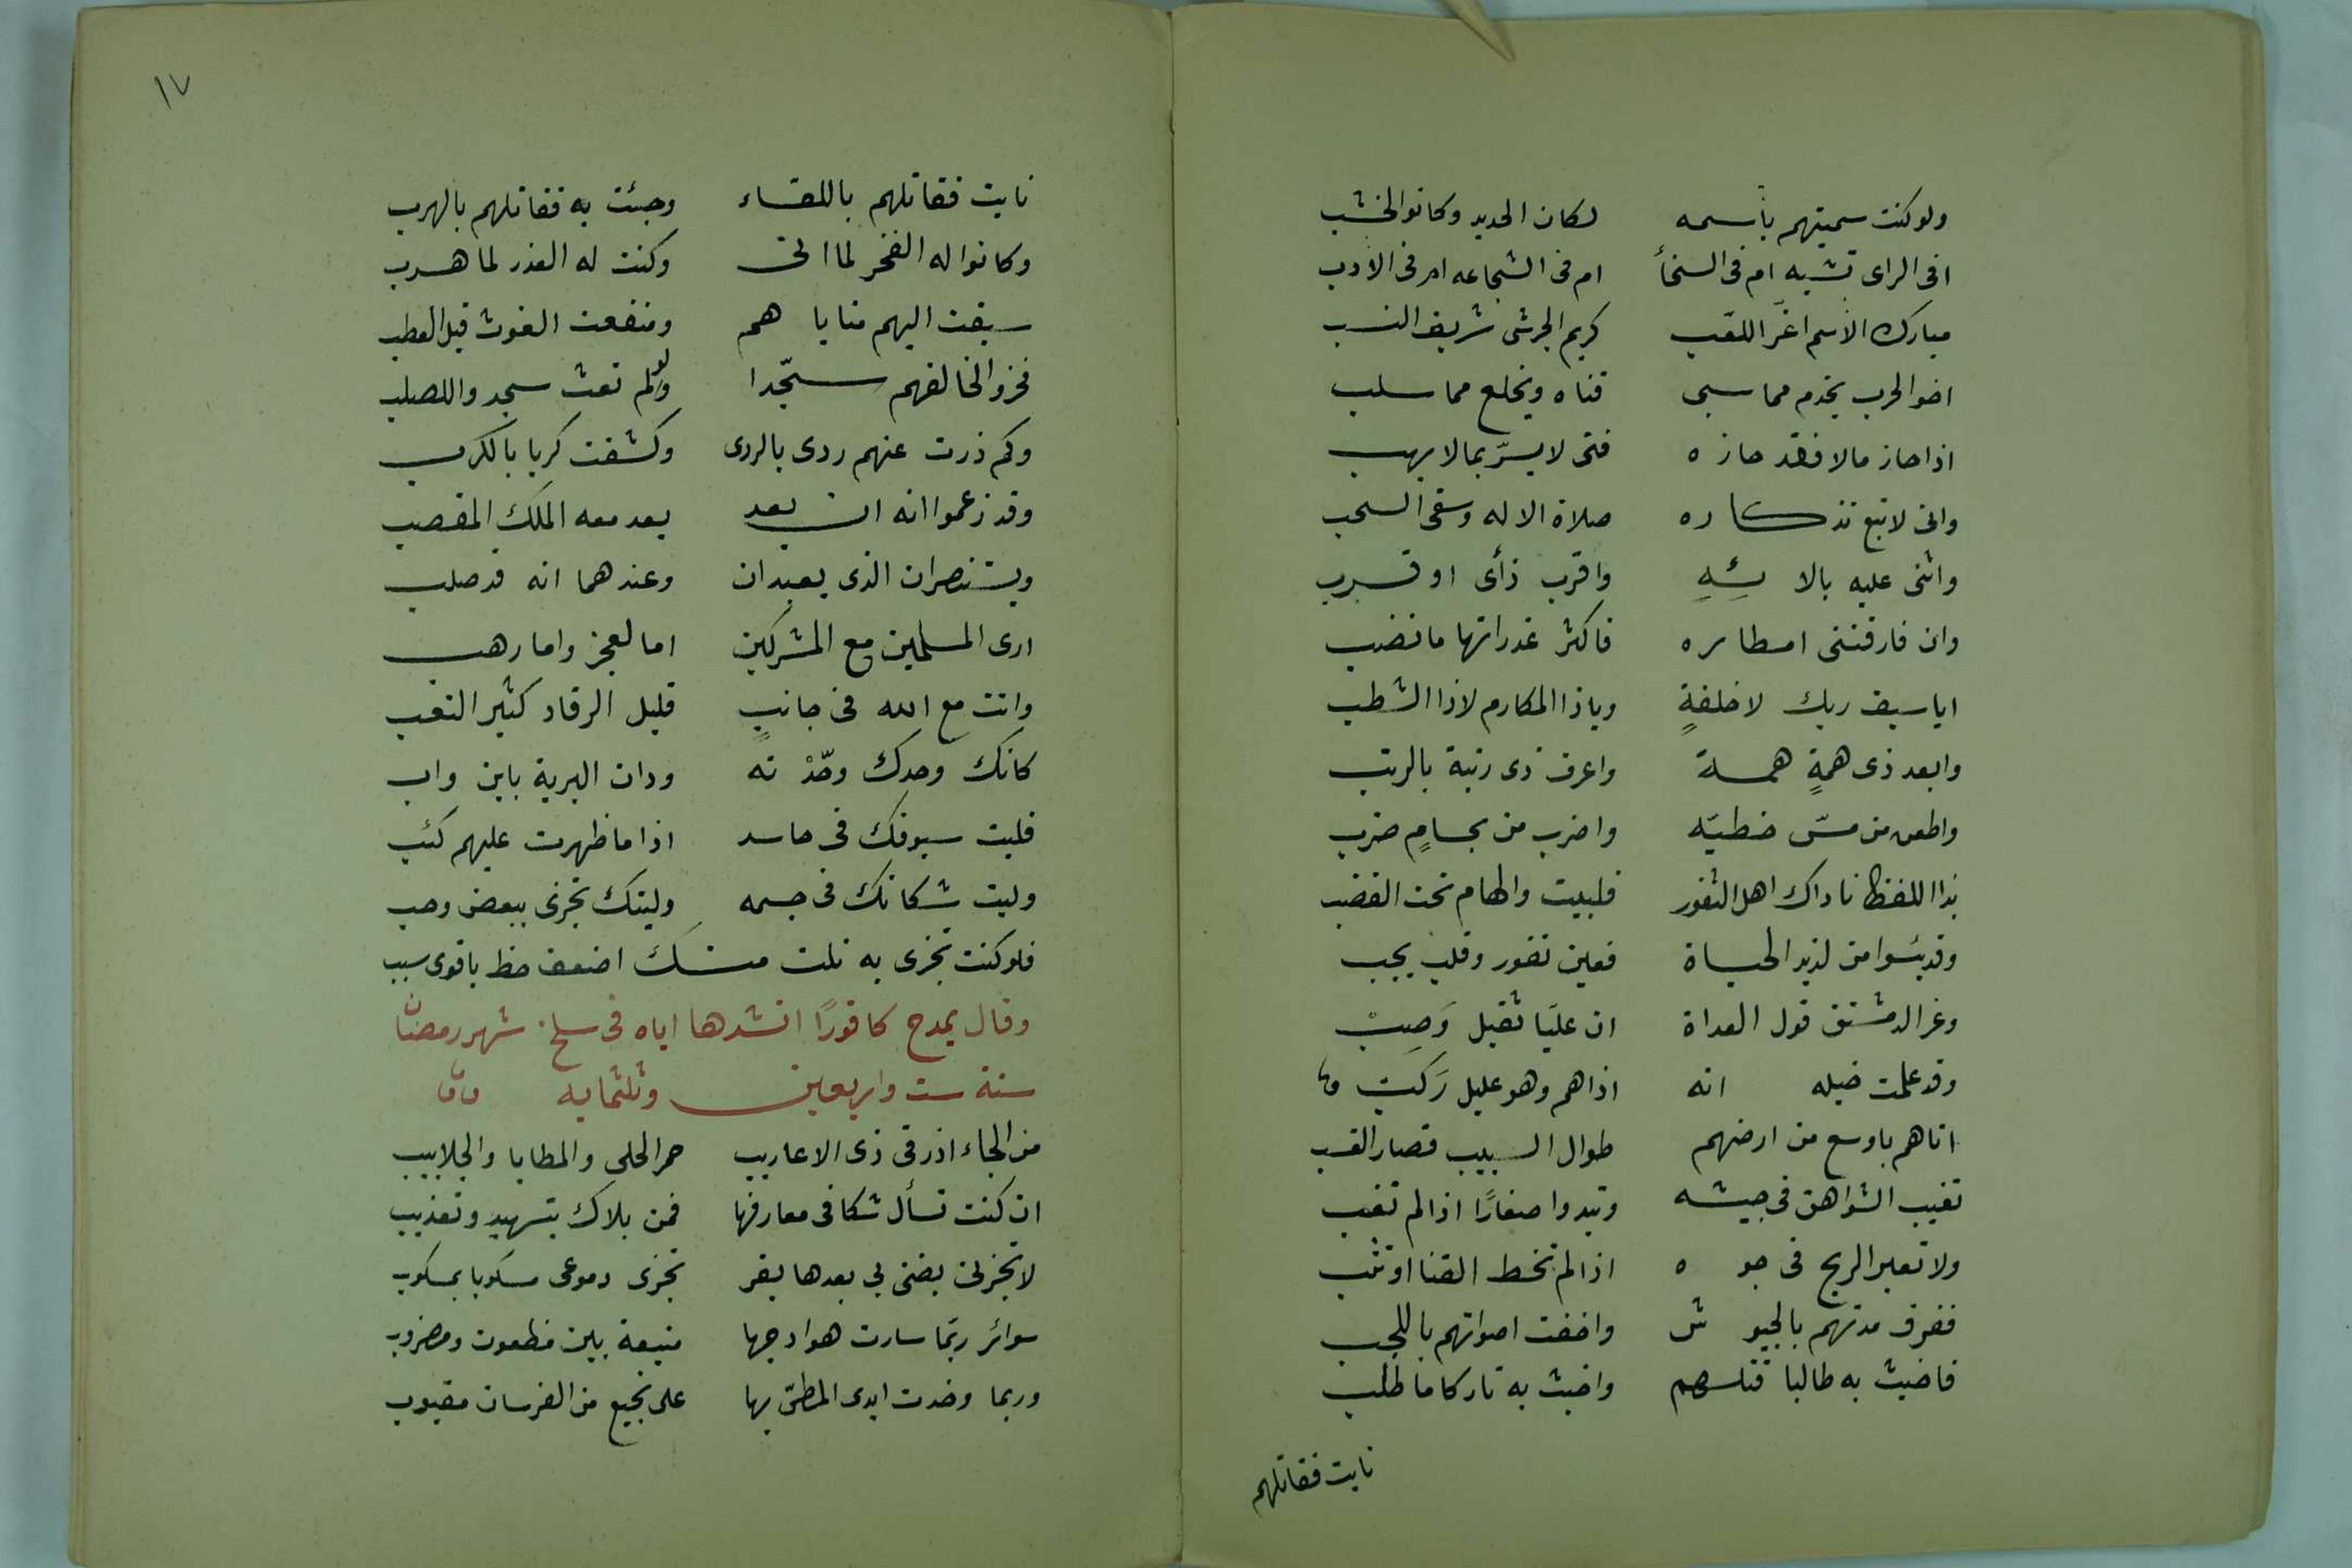 ولو كنت سميتهم بأسمه لكان الحديد وكانوا الخشب
افى الراى تشبه ام فى السخأ ام فى الشجاعه ام فى الأدب
مبارك الأسم اغرّ اللقب كريم الجرشى شريف النسب
اخو الحرب يخدم مما سبى قناه ويخلع مما سلب
اذا حاز مالا فقد حازه فتى لا يسرّ بما لا يهب
وانى لاتبع تذكاره صلاة الاله وسقى السحب
واثنى عليه بالائهِ واقرب نأى او قرب
وان فارقتنى امطاره فاكثر غدرانها ما نضب
ايا سيف ربك لا خلقةٍ وياذا المكارم لاذا الشطب
وابعد ذى همةٍ همة واعرف ذى رتبة بالرتب
واطعن من مسّ خطيّه واضرب من بحسامٍ ضرب
بذا اللفظ ناداك اهل الثغور فلبيت والهام تحت القضب
وقد يئسوا من لذيذ الحياة فعين تغور وقلب يجب
وغر الدمستق قول العداة ان عليّا ثقيل وَصِبْ
وقد علمت خيله انه اذا هم وهو عليل رَكبْ
اتاهم باوسع من ارضهم طوال السبيب قصار القسب
تغيب الشواهق فى جيشه وتبدوا صغارًا اذا لم تغب
ولا تعبر الريح فى جوه اذا لم تخط القنا او تثب
فغرق مدنهم بالجيوش واخفت اصواتهم باللجب
فاخبث به طالبا قتلهم واخبث به تاركا ما طلب
نايت فقاتلهم
١٧
نايت فقاتلهم باللقاء وجئت به فقاتلهم بالهرب
وكانوا له الفخر لما اتى وكنت له العذر لما هرب
سبقت اليهم مناياهم ومنفعت الغوث قبل العطب
فخروا لخالقهم سجّدا ولو لم تغث سجدوا للصلب
وكم ذدت عنهم ردى بالردى وكشفت كربا بالكرب
وقد زعموا انه ان يعد يعد معه الملك المقصب
ويستنصران الذى يعبدان وعندهما انه قد صلب
ارى المسلمين مع المشركين اما لعجز واما رهب
وانت مع الله فى جانبٍ قليل الرقاد كثير التعب
كانك وحدك وحّدْته ودان البرية باين واب
فليت سيوفك فى حاسد اذا ما ظهرت عليهم كئب
وليت شكاتك فى جسمه وليتك تجزى ببعض وحب
فلو كنت تجزى به نلت منك اضعف حظ باقوى سبب
وقال يمدح كافورًا انشدها اياه فى سلخ شهر رمضان
سنة ست واربعين وثلثمايه
من الجاء اذر فى ذى الاعاريب حمر الحلى والمطايا والجلابيب
ان كنت تسأل شكا فى معارفها فمن بلاك بتسهيد وتعذيب
لا تجزنى بضنى بى بعدها بقر تجزى دموعى مسكوبا بمسكوب
سوائر ربّما سارت هوادجها منيعة بين مطعون ومضروب
وربما وخدت ايدى المطىّ بها على نجيع من الفرسان مصبوب